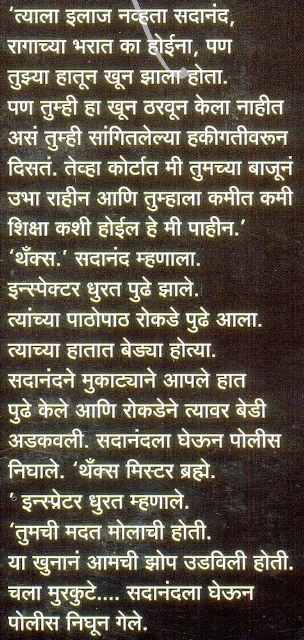 ‘त्याला इलाज नव्हता सदानंद,
रागाच्या भरात का होईना, पण
तुझ्या हातून खून झाला होता.
पण तुम्ही हा खून ठरवून केला नाहीत
असं तुम्ही सांगितलेल्या हकीगतीवरून
दिसतं. तेव्हा कोर्टात मी तुमच्या बाजूनं
उभा राहीन आणि तुम्हाला कमीत कमी
शिक्षा कशी होईल हे मी पाहीन.’
‘थँक्स.’ सदानंद म्हणाला.
इन्स्पेक्टर धुरत पुढे झाले.
त्यांच्या पाठोपाठ रोकडे पुढे आला.
त्याच्या हातात बेड्या होत्या.
सदानंदने मुकाट्याने आपले हात
पुढे केले आणि रोकडेने त्यावर बेडी
अडकवली. सदानंदला घेऊन पोलीस
निघाले. ‘थँक्स मिस्टर ब्रह्मे.
’ इन्स्प्रेटर धुरत म्हणाले.
‘तुमची मदत मोलाची होती.
या खुनानं आमची झोप उडविली होती.
चला मुरकुटे.... सदानंदला घेऊन
पोलीस निघून गेले.